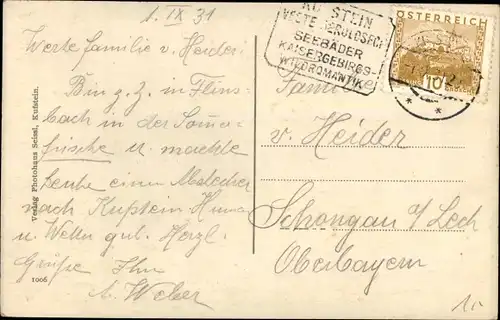 1. IX 31
Werte Familie v. Heider!
Bin z. Z. in Flins-
bach in der Somer-
frische u. machte
heute einen Abstecher
nach Kufstein
u. Wetter gut. Herzl.
Grüße Ihr
A. Weber
Verlag Photohaus Seissl, Kufstein.
1006
KUFSTEIN
VESTE GEROLDSECK
SEEBÄDER
KAISERGEBIRGS-
WILDROMANTIK
ÖSTERREICH
10
Familie
v. Heider
Schongau a/Lech
Oberbayern